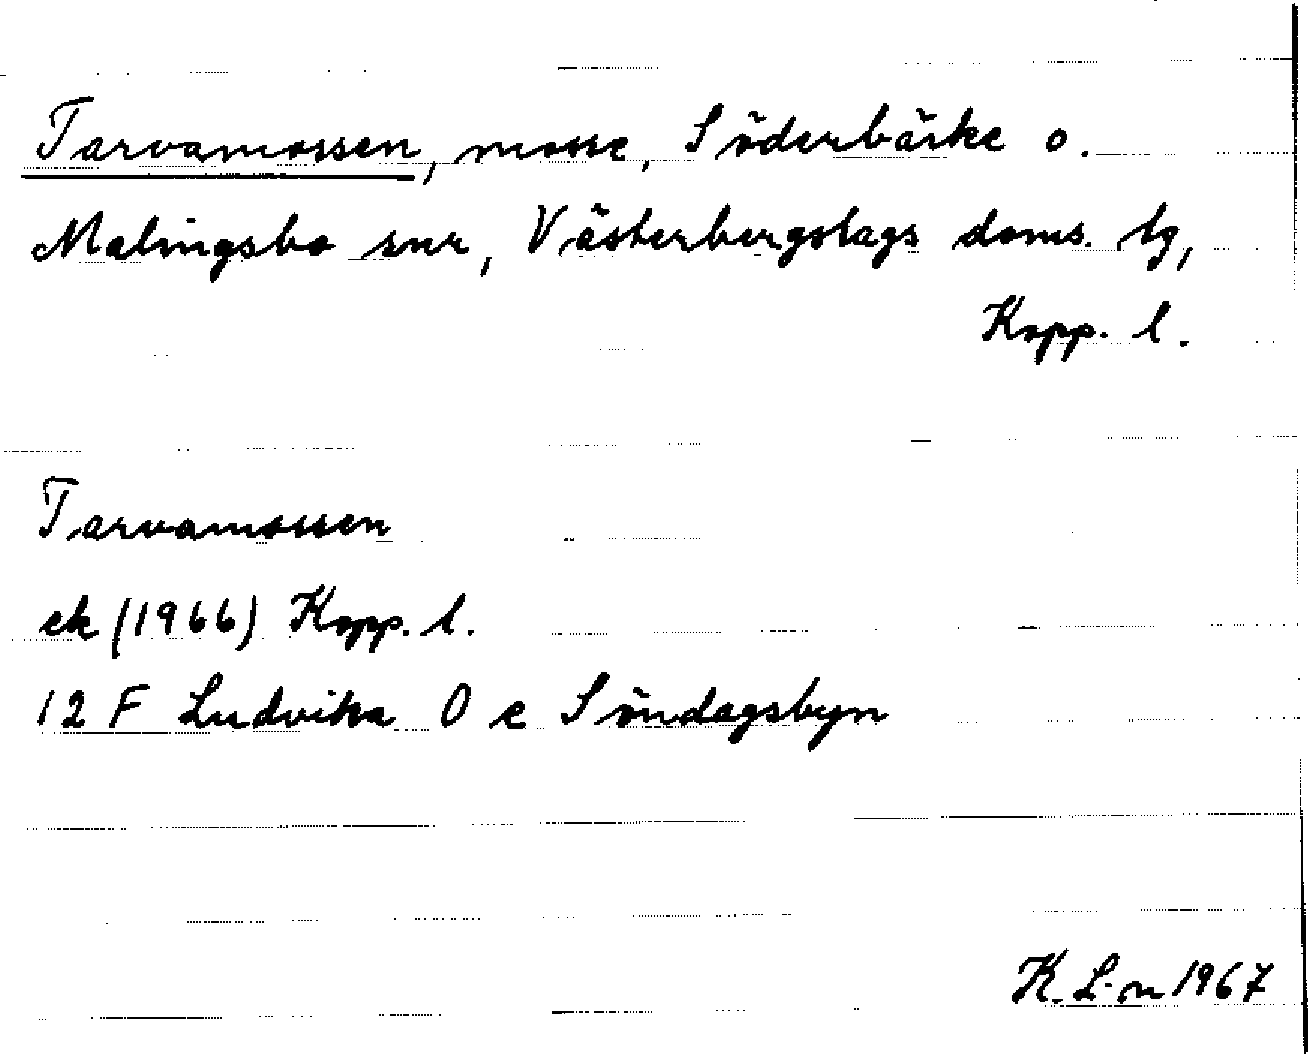 Tarvamossen, mosse, Söderbärke o.
Malingsbo snr, Västerbergslags doms. lg,
Kopp. l.
Tarvamossen
ek (1966) Kopp. l.
12 F Ludvika O e Söndagsbyn
K. L-n 1967